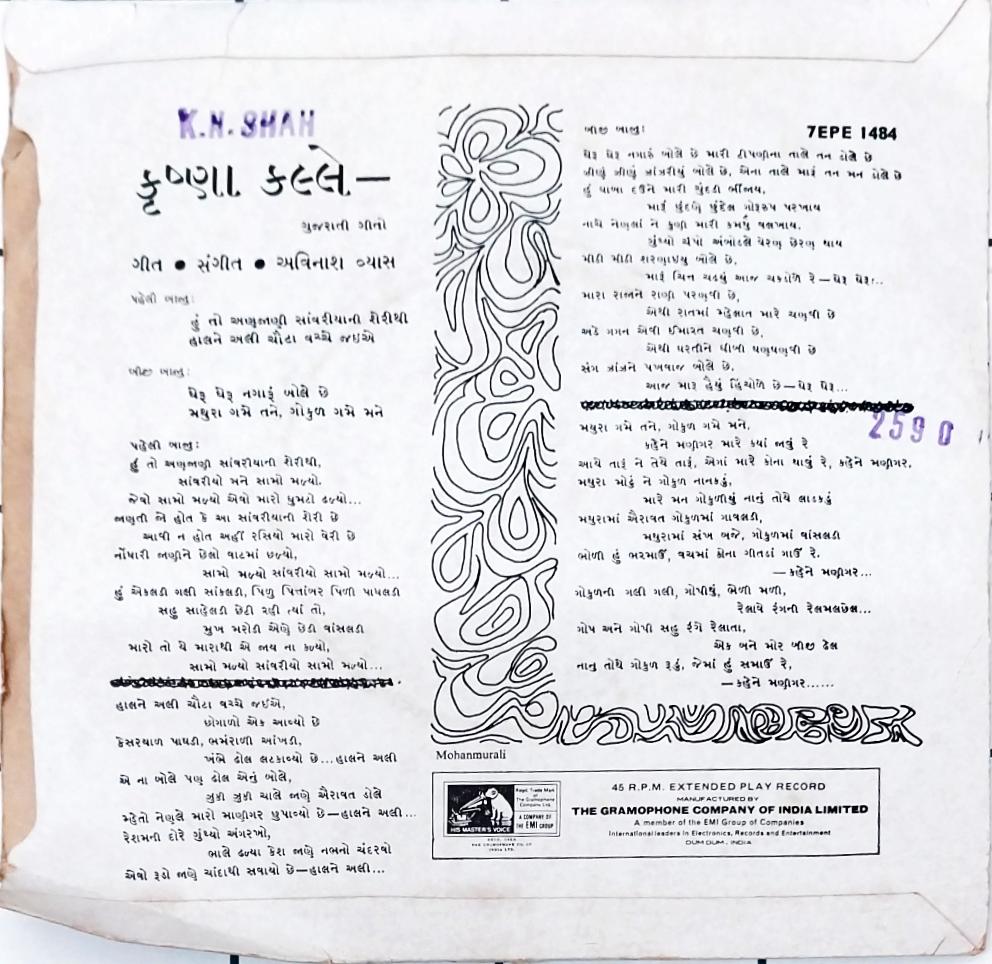 K.N. SHAH
કૃષ્ણા કલ્લે—
ગુજરાતી ગીતો
ગીત • સંગીત • અવિનાશ વ્યાસ
પહેલી બાજુ:
હું તો અણજાણી સાંવરીયાની શેરીથી
હાલને અલી ચૌટા વચ્ચે જઇએ
બીજી બાજુ:
ઘેરૂ ઘેરૂ નગારૂં બોલે છે
મથુરા ગમે તને, ગોકુળ ગમે મને
પહેલી બાજુ:
હું તો અણજાણી સાંવરીયાની શેરીથી,
સાંવરીયો મને સામો મળ્યો.
જેવો સામો મળ્યો એવો મારો ઘુમટો ઢળ્યો...
જાણતી જો હોત કે આ સાંવરીયાની શેરી છે
આવી ન હોત અહીં રસિયો મારો વેરી છે
નોંધારી જાણીને છેલો વાટમાં છળ્યો,
સામો મળ્યો સાંવરીયો સામો મળ્યો...
હું એકલડી ગલી સાંકલડી, પિળુ પિત્તાંબર પિળી પાઘલડી
સહુ સાહેલડી છેટી રહી ત્યાં તો,
મુખ મરોડી એણે છેડી વાંસલડી
મારો તો યે મારાથી એ જાય ના કળ્યો,
સામો મળ્યો સાંવરીયો સામો મળ્યો...
હાલને અલી ચૌટા વચ્ચે જઇએ,
છોગાળો એક આવ્યો છે
કેસરયાળ પાઘડી, ભમંરાળી આંખડી,
ખંભે ઢોલ લટકાવ્યો છે...હાલને અલી
એ ના બોલે પણ ઢોલ એનું બોલે,
ઝુકી ઝુકી ચાલે જાણે ઐરાવત ડોલે
મ્હેતો નેણુલે મારો માણીગર છુપાવ્યો છે—હાલને અલી...
રેશમની દોરે ગુંથ્યો અંગરખો,
ભાલે ઢળ્યા કેશ જાણે નભનો ચંદરવો
એવો રૂડો જાણે ચાંદાથી સવાયો છે—હાલને અલી...
બીજી બાજુ:
7EPE 1484
ઘેરૂ ઘેરૂ નગારું બોલે છે મારી ટીપણીના તાલે તન ડોલે છે
ઝીણું ઝીણું ઝાંઝરીયું બોલે છે, એના તાલે મારૂં તન મન ડોલે છે
હું ધાબા દઉંને મારી ચુંદડી ભીંજાય,
મારૂં છુંદણે છુંદેલ ગોરૂરુપ પરખાય
નાચે નેણલાં ને કુણી મારી કમ્મર વલખાય,
ગુંથ્યો ચંપો અંબોડલે વેરણ છેરણ થાય
મીઠી મીઠી શરણાઇયુ બોલે છે,
મારૂં ચિત ચડ્યું આજ ચકડોળે રે—ઘેરૂ ઘેરૂ...
મારા રાજાને રાણી પરણવી છે,
એથી રાતમાં મ્હેલાત મારે ચણવી છે
અડે ગગન એવી ઈમારત ચણવી છે,
એથી ધરતીને ધીબી ધણધણવી છે
સંગ ઝાંઝને પખવાજ બોલે છે.
આજ મારૂ હૈયું હિંચોળે છે—ઘેરૂ ઘેરૂ...
2590
મથુરા ગમે તને, ગોકુળ ગમે મને.
કહેને મણીગર મારે ક્યાં જાવું રે
આયે તારૂં ને તેયે તારૂં, એગાં મારે કોના થાવું રે, કહેને મણીગર.
મથુરા મોટું ને ગોકુળ નાનકડું,
મારે મન ગોકુળીયું નાનું તોયે લાડકડું
મથુરામાં ઐરાવત ગોકુળમાં ગાવલડી,
મથુરામાં સંખ બજે, ગોકુળમાં વાંસલડી
ભોળી હું ભરમાઉં, વચમાં કોના ગીતડાં ગાઉં રે.
—કહેને મણીગર...
ગોકુળની ગલી ગલી, ગોપીયું, ભેળી મળી,
રેલાવે રંગની રેલમલછેલ...
ગોપ અને ગોપી સહુ રંગે રેલાતા,
એક બને મોર બીજી ઢેલ
નાનુ તોયે ગોકુળ રૂડું, જેમાં હું સમાઉં રે,
—કહેને મણીગર......
Mohanmurali
HIS MASTER'S VOICE
Regd. Trade Mark
of The
Gramophone
Company Ltd.
A COMPANY OF
THE EMI GROUP
45 R.P.M. EXTENDED PLAY RECORD
MANUFACTURED BY
THE GRAMOPHONE COMPANY OF INDIA LIMITED
A member of the EMI Group of Companies
International leaders in Electronics, Records and Entertainment
DUM DUM, INDIA